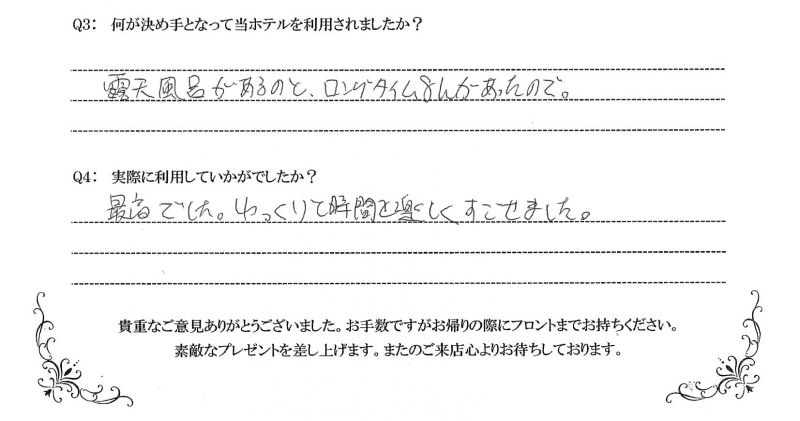 Q3: 何が決め手となって当ホテルを利用されましたか?
露天風呂があるのと、ロングタイムえんがあったので。
Q4: 実際に利用していかがでしたか?
最高でした。ゆっくりと時間を楽しくすごせました。
貴重なご意見ありがとうございました。お手数ですがお帰りの際にフロントまでお持ちください。
素敵なプレゼントを差し上げます。またのご来店心よりお待ちしております。